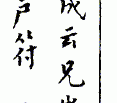 成云兄出
户符